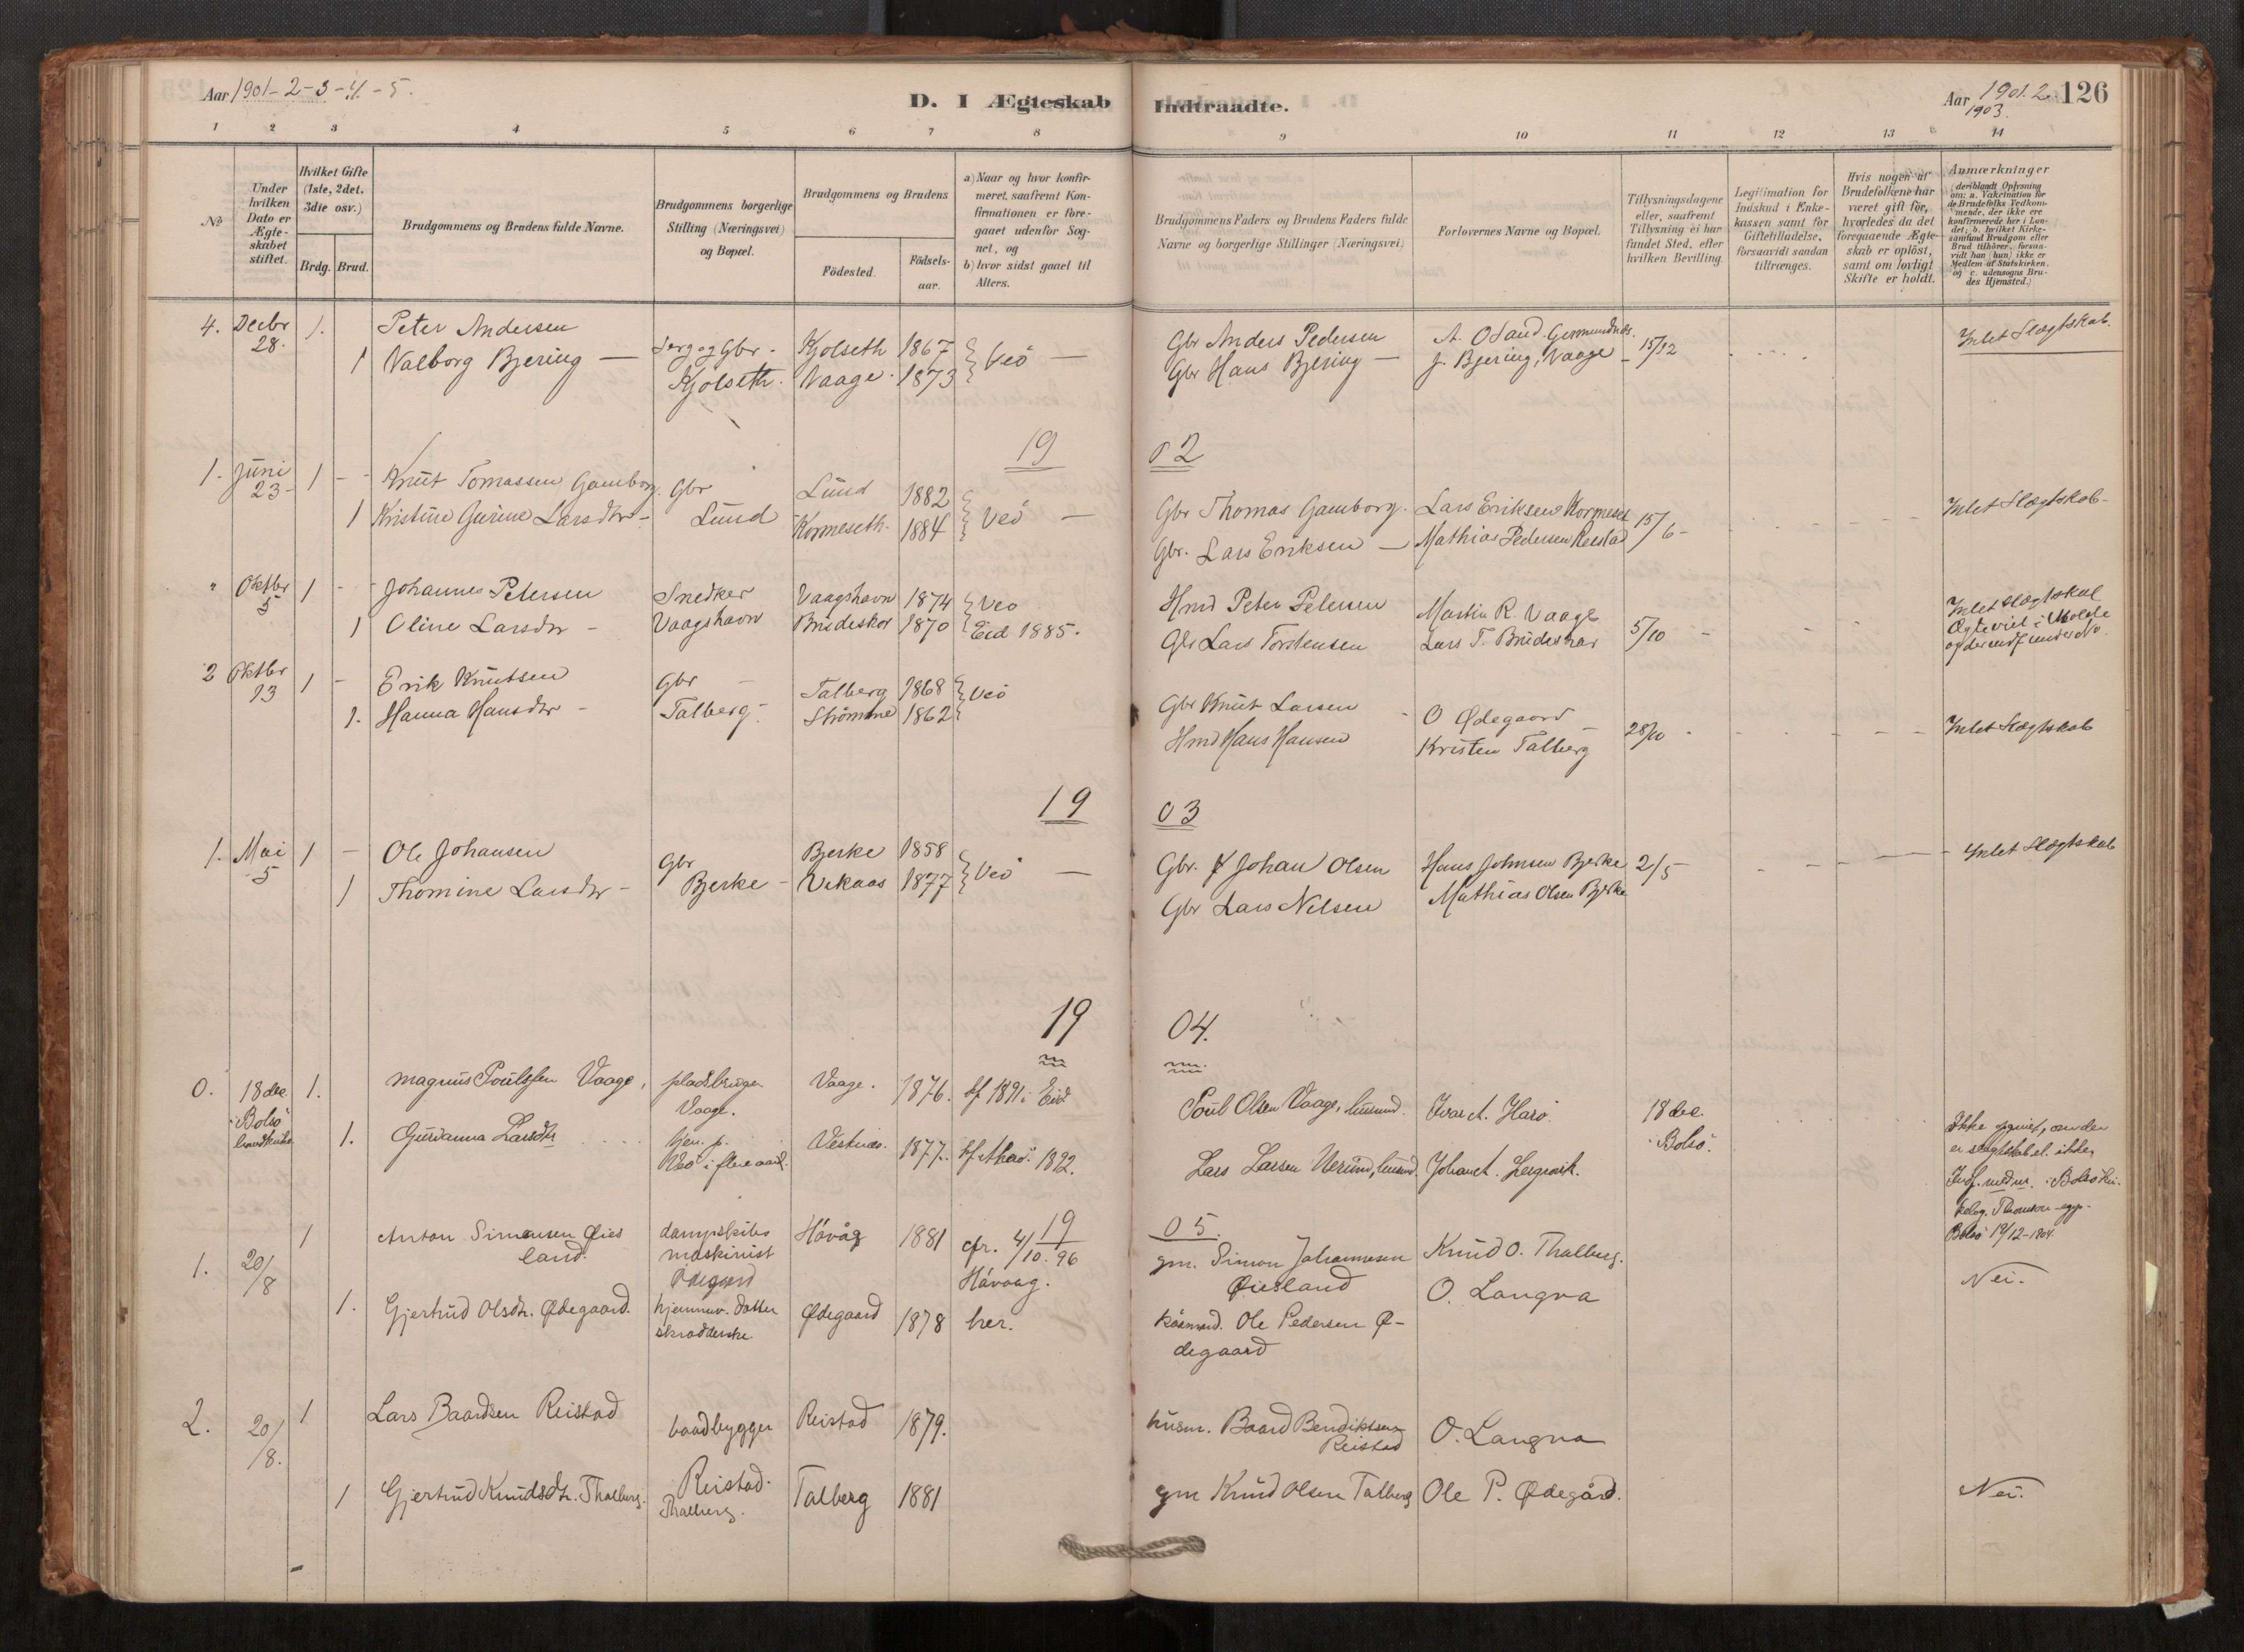 Aar 1901-2-3-4-5.
D. I Ægteskab
Indtraadte.
Aar 1901.2
1903.
126
1 2 3 4 5 6 7 8 9 10 11 12 13 14
No
Under hvilken Dato er Ægteskabet stiftet.
Hvilket Gifte (1ste, 2det, 3die osv.)
Brdg. Brud.
Brudgommens og Brudens fulde Navne.
Brudgommens borgerlige Stilling (Næringsvei) og Bopæl.
Brudgommens og Brudens
Födested.
Födsels-aar.
a) Naar og hvor konfirmeret, saafremt Konfirmationen er foregaaet udenfor Sognet, og
b) hvor sidst gaaet til Alters.
Brudgommens Faders og Brudens Faders fulde Navne og borgerlige Stillinger (Næringsvei)
Forlovernes Navne og Bopæl.
Tillysningsdagene eller, saafremt Tillysning ei har fundet Sted, efter hvilken Bevilling.
Legitimation for Indskud i Enkekassen samt for Giftetilladelse, forsaavidt saadan tiltrænges.
Hvis nogen af Brudefolkene har været gift før, hvorledes da det foregaaende Ægteskab er oplöst, samt om lovligt Skifte er holdt.
Anmærkninger
(deriblandt Oplysning om: a. Vakcination for de Brudefolks Vedkommende, der ikke ere konfirmerede her i Landet; b. hvilket Kirkesamfund Brudgom eller Brud tilhörer, forsaavidt han (hun) ikke er Medlem af Statskirken. og c. udensogns Brudes Hjemsted.)
4. Decbr 28. 1. Peter Andersen
Gbr. Kjolseth 1867 Veö
Gbr Anders Pedersen
15/12
Intet Slægtskab.
1 Valborg Bjering
Kjolseth. Vaage. 1873
Gbr Hans Bjering
J. Bjering, Vaage
19 02
1. Juni 23 1 Knut Tomassen Gamborg. Gbr Lund 1882 Veö
Gbr Thomas Gamborg. Lars Eriksen Kormeset 15/6
Intet Slægtskab
1 Kristine Gurine Larsdtr Lund Kormeseth. 1884
Gbr. Lars Eriksen Mathias Pedersen Reistad
" Oktbr 5 1 Johannes Petersen Snedker Vaagshavn 1874 Veö
Hmd Peter Petersen Martin R. Vaage 5/10
Intet Slægtskab
Ægteviet i Molde
1 Oline Larsdtr Vaagshavn Brudeskor 1870 Eid 1885.
Gbr Lars Torstensen Lars T. Brudeskar
2 Oktbr 13 1 Erik Knutsen Gbr Talberg 1868 Veö
Gbr Knut Larsen O Ødegaard 28/10
1. Hanna Hansdtr Talberg. Strömme 1862
Hmd Hans Hansen Kristen Talberg
Intet Slægtskab
19 03
1. Mai 5 1 Ole Johansen Gbr Bjerke 1858 Veö
Gbr. Johan Olsen Hans Johnsen Bjerke 2/5
Intet Slægtskab
1 Thomine Larsdtr Bjerke Vekaas 1877
Gbr Lars Nilsen Mathias Olsen Bjerke
19 04.
0. 18 dec. i Bolsö 1. Magnus Poulssen Vaage, pladsbruger Vaage. Vaage. 1876. kf 1891 i Eid
Poul Olsen Vaage, husmd. Ivar A. Harö. 18 dec. i Bolsö.
1. Gurianna Larsdtr Veö i flere aar. Vestnes. 1877. 1892.
Lars Larsen Johan A.
Bolsö 19/12-1904.
19 05
1. 20/8 1 Anton Simonsen Øiesland. dampskibs maskinist Ødegaard Hövåg 1881 cfr. 4/10. 96 Hövaag.
gm. Simon Johannesen Øiesland Knud O. Thalberg.
Nei.
1. Gjertrud Olsdtr. Ødegaard. hjemmev. datter skrædderske Ødegaard 1878 her.
Ole Pedersen Ødegaard O. Langva
2. 20/8. 1 Lars Baardsen Reistad baadbygger Reistad. Reistad 1879.
husm. Baard Bendiktsen Reistad O. Langva
1 Gjertrud Knudsdtr. Thalberg. Thalberg. Talberg 1881
gm Knud Olsen Talberg Ole P. Ødegård.
Nei.